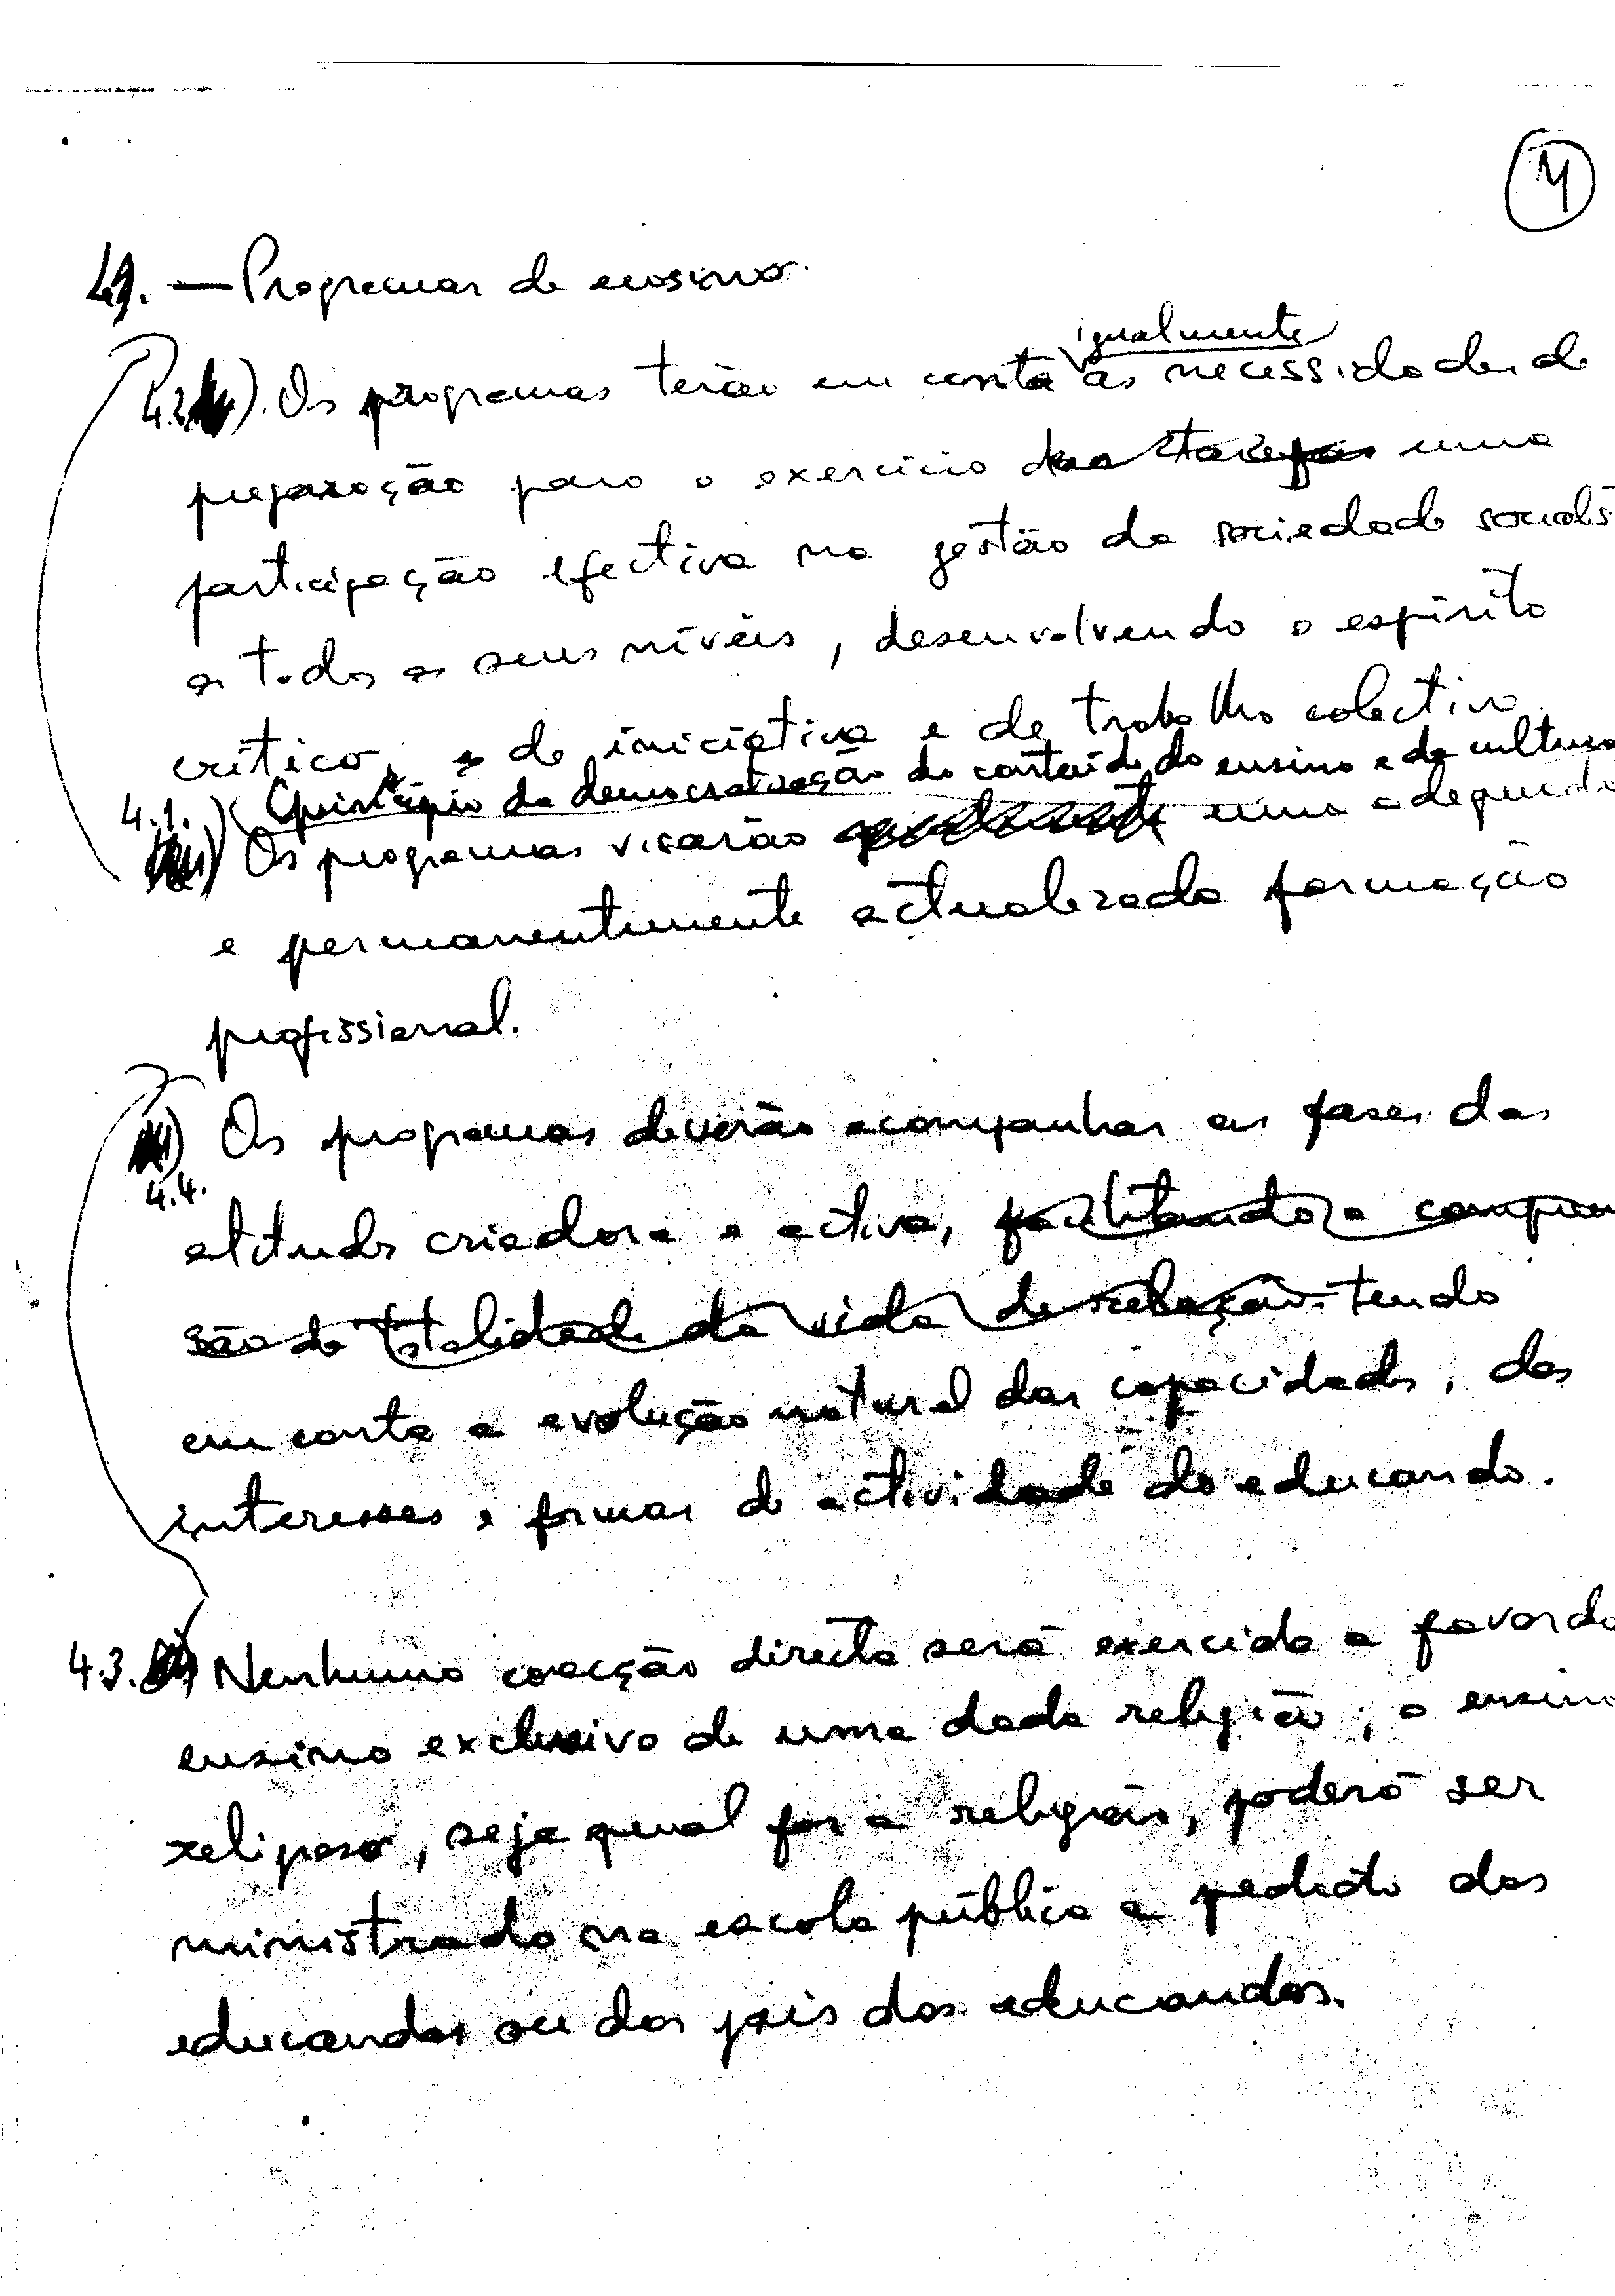 4. — Programas de ensino.
igualmente
4.2 ). Os programas terão em conta as necessidades de
preparação para o exercício das tarefas uma
participação efectiva na gestão da sociedade socialis
a todos os seus níveis, desenvolvendo o espírito
crítico, e de iniciativa e de trabalho colectivo.
4.1. ) (princípio da democratização do conteúdo do ensino e da cultura
Os programas visarão uma adequada
e permanentemente actualizada formação
profissional.
) Os programas deverão acompanhar as fases das
4.4.
atitudes criadora e activa, facilitando a compreen
são da totalidade da vida de relação. tendo
em conta a evolução natural das capacidades, dos
interesses e formas de actividade do educando.
4.3. Nenhuma coacção directa será exercida a favor do
ensino exclusivo de uma dada religião; o ensino
religioso, seja qual for a religião, poderá ser
ministrado na escola pública a pedido dos
educandos ou dos pais dos educandos.